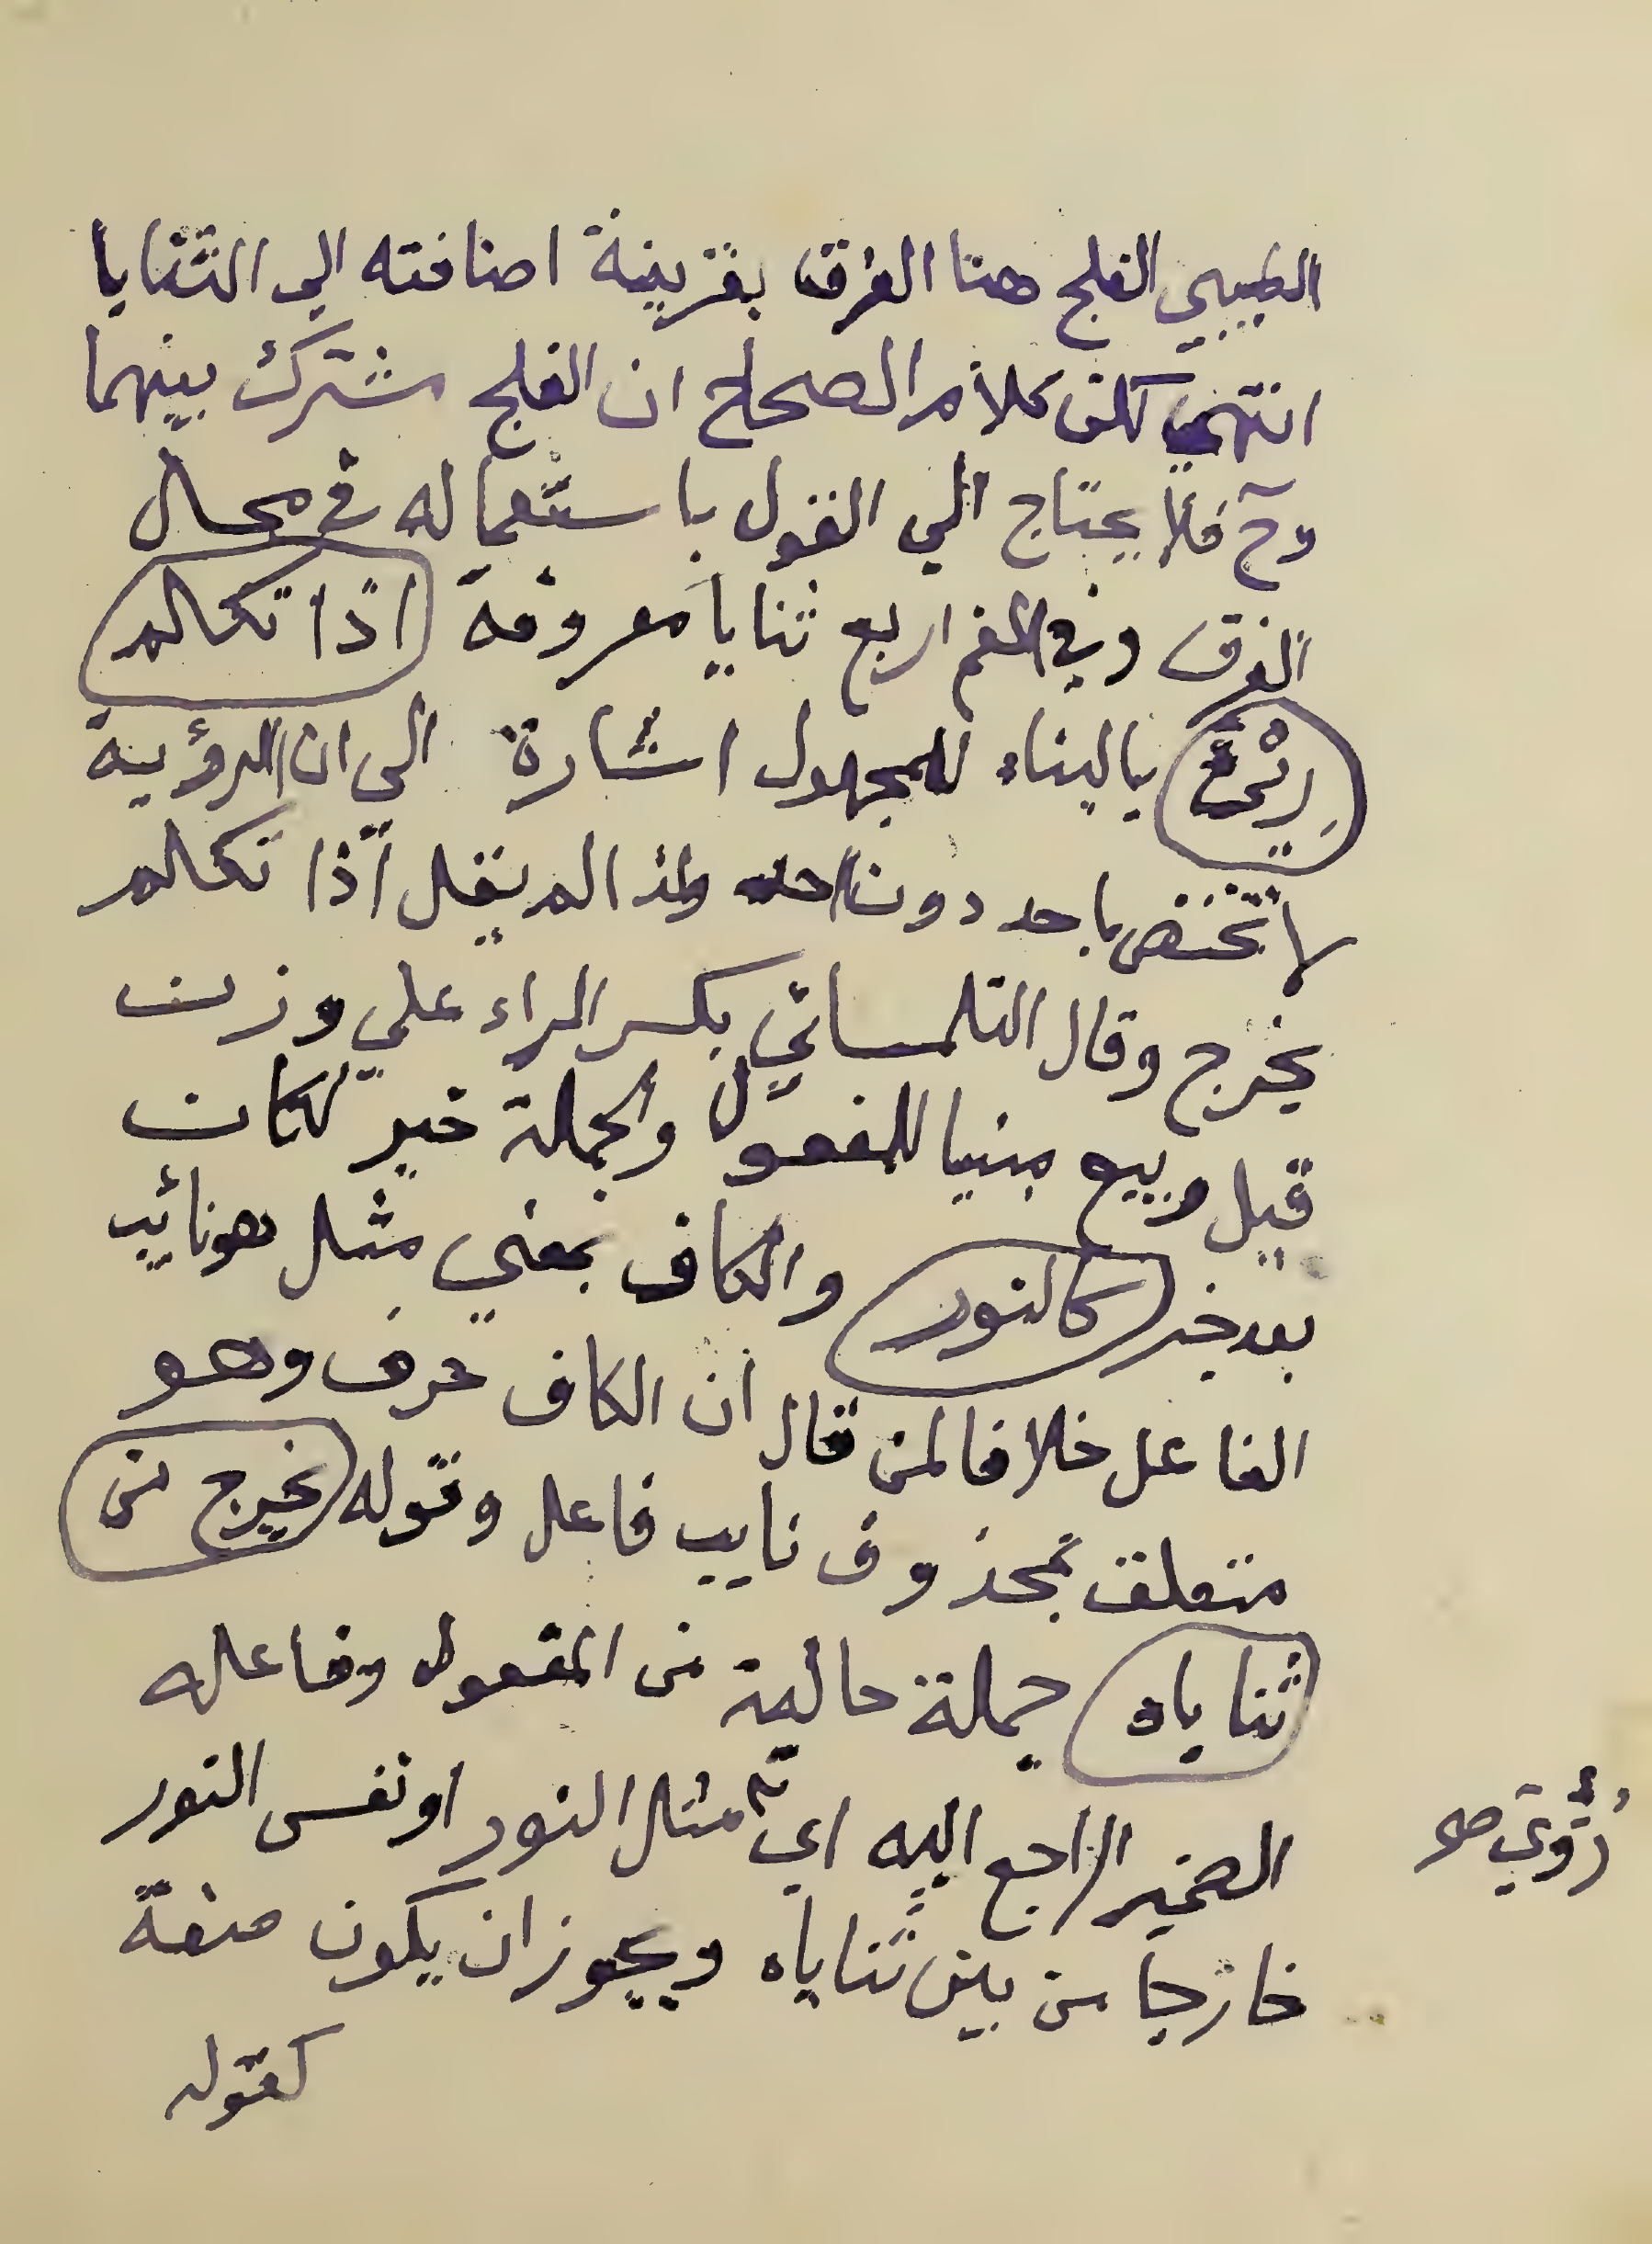 الطيبي الفلج هنا الفرق بقرينة اضافته الي الثنايا
انتهي لكن كلام الصحاح ان الفلج مشترك بينهما
وح فلا يحتاج الي القول باستعماله في محال
الفرق وفي الفم اربع ثنايا معروفة اذا تكلم
رئي بالبناء للمجهول اشارة الي ان الرؤية
لا تختص باحد دون احد ولذا لم يقل اذا تكلم
يخرج وقال التلمساني بكسر الراء علي وزن
قيل وبيع مبنيا للمفعول والجملة خبر لكان
بعد خبر كالنور والكاف بمعني مثل هو نائب
الفاعل خلافا لمن قال ان الكاف حرف وهو
متعلق بمحذوف نايب فاعل وقوله يخرج من
ثناياه جملة حالية من المفعول وفاعله
الضمير الراجع اليه اي مثل النور او نفس النور
رُؤي صح
خارجا من بين ثناياه ويجوز ان يكون صفة
كقوله